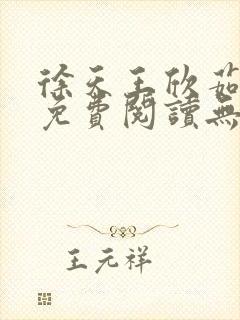 徐天王欣茹
免費閱讀無
王元祥